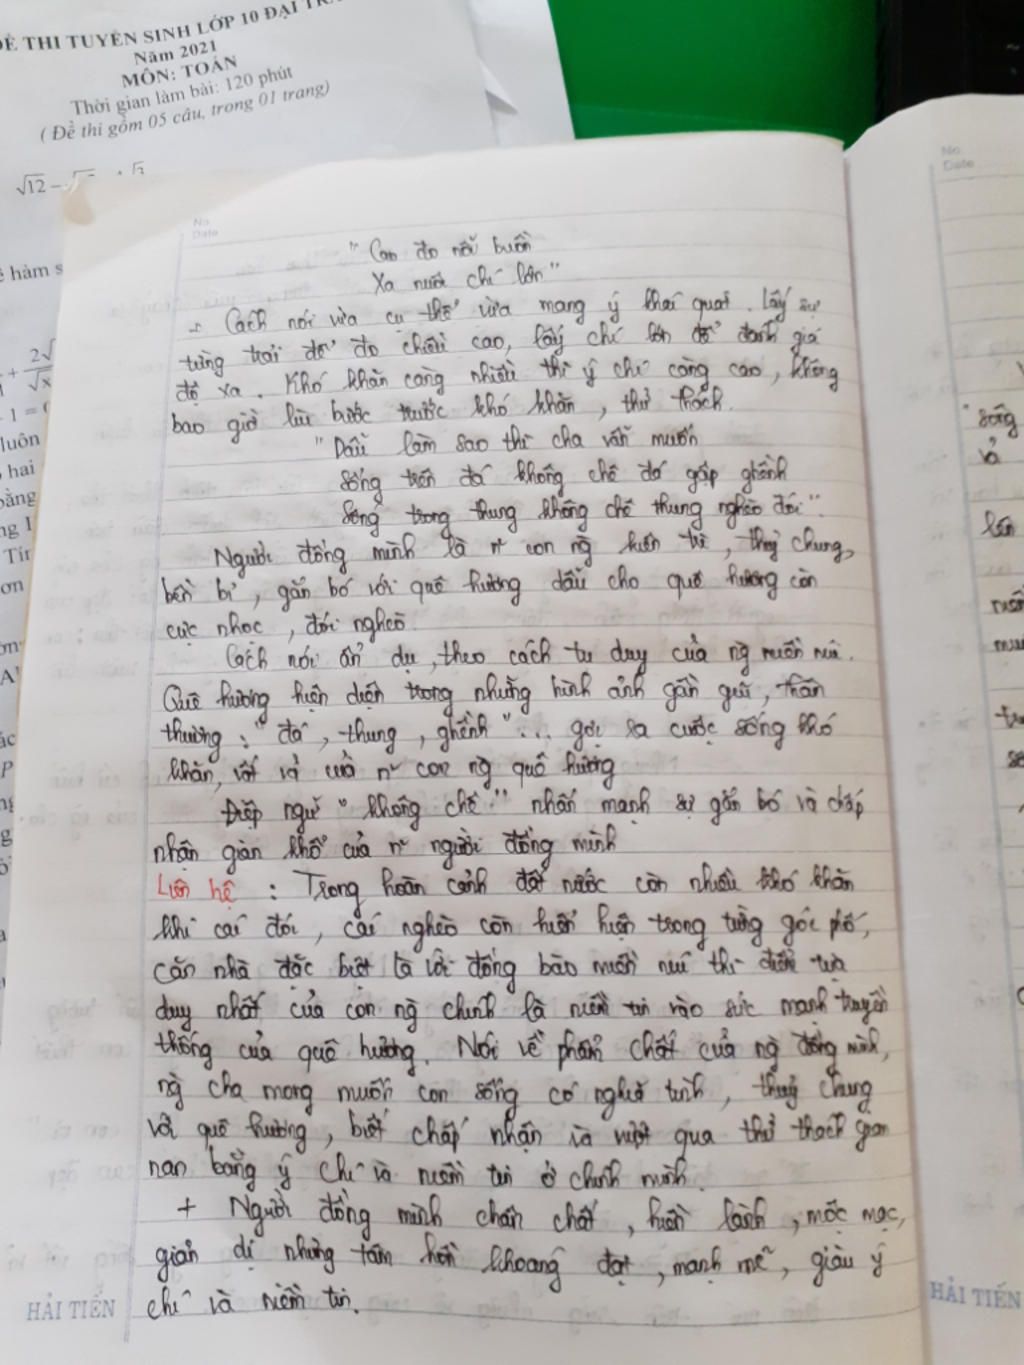 ĐỀ THI TUYỂN SINH LỚP 10 ĐẠI TR
Năm 2021
MÔN: TOÁN
Thời gian làm bài: 120 phút
( Đề thi gồm 05 câu, trong 01 trang)
√12 –
hàm s
luôn
hai
bằng
No.
Date
" Cao đo nỗi buồn
Xa nuôi chí lớn "
Cách nói vừa cụ thể vừa mang ý khái quát. Lấy sự
từng trải để đo chiều cao, lấy chí lớn để đánh giá
độ xa. Khó khăn càng nhiều thì ý chí càng cao, không
bao giờ lùi bước trước khó khăn, thử thách.
" Dẫu làm sao thì cha vẫn muốn
Sống trên đá không chê đá gập ghềnh
Sống trong thung không chê thung nghèo đói ".
Người đồng mình là n~ con ng kiên trì, thuỷ chung,
bền bỉ, gắn bó với quê hương dẫu cho quê hương còn
cực nhọc, đói nghèo
Cách nói ẩn dụ, theo cách tư duy của ng miền núi.
Quê hương hiện diện trong những hình ảnh gần gũi, thân
thường : " đá, thung, ghềnh " ... gợi ra cuộc sống khó
khăn, vất vả của n~ con ng quê hương
Điệp ngữ " không chê " nhấn mạnh sự gắn bó và chấp
nhận gian khổ của n~ người đồng mình
Liên hệ : Trong hoàn cảnh đất nước còn nhiều khó khăn
khi cái đói, cái nghèo còn hiển hiện trong từng góc phố,
căn nhà đặc biệt là với đồng bào miền núi thì điểm tựa
duy nhất của con ng chính là niềm tin vào sức mạnh truyền
thống của quê hương. Nói về phẩm chất của ng đồng mình,
ng cha mong muốn con sống có nghĩa tình, thuỷ chung
với quê hương, biết chấp nhận và vượt qua thử thách gian
nan bằng ý chí và niềm tin ở chính mình.
+ Người đồng mình chân chất, hiền lành, mộc mạc,
giản dị nhưng tâm hồn khoáng đạt, mạnh mẽ, giàu ý
chí và niềm tin.
HẢI TIẾN
No.
Date
sống
và
lên
HẢI TIẾN